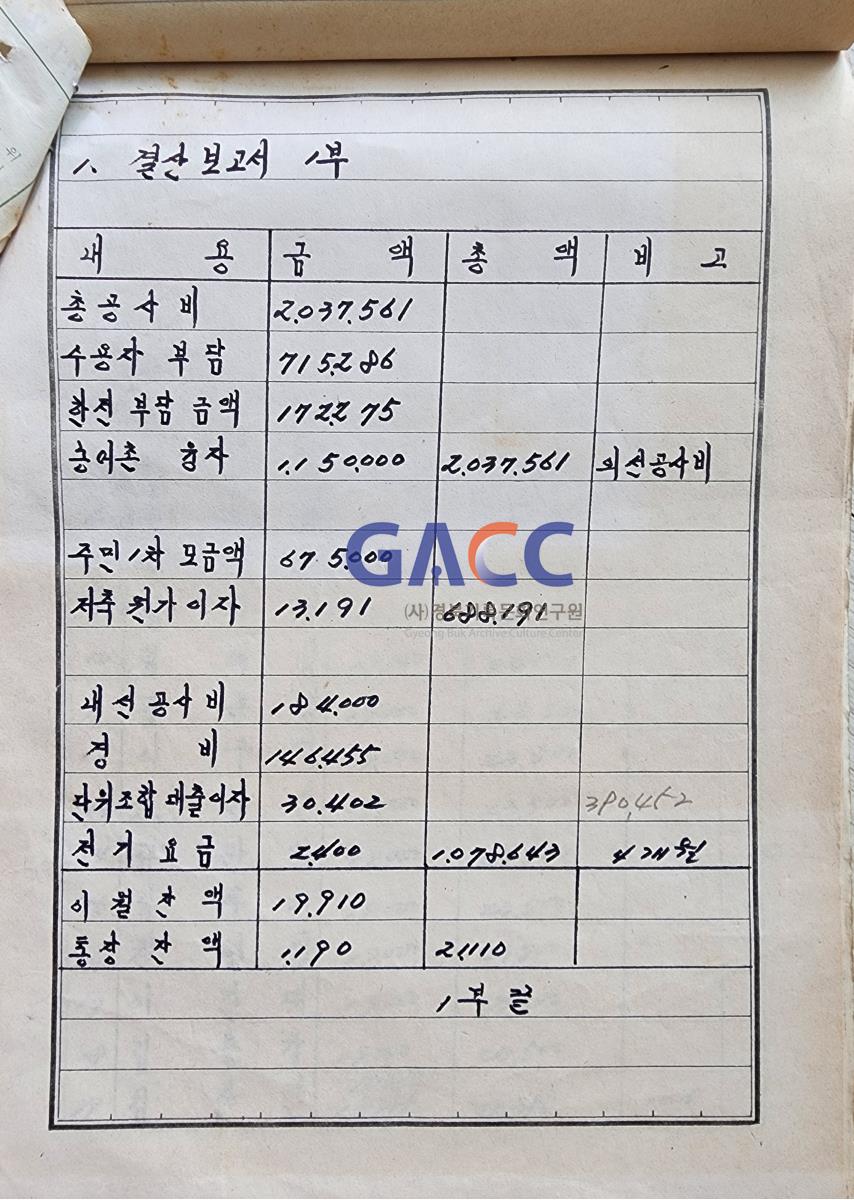 1. 결산보고서 1부
내 용 금 액 총 액 비 고
총공사비 2.037.561
수용자 부담 715.286
한전 부담 금액 172.275
농어촌 융자 1.150.000 2.037.561 외선공사비
주민1차 모금액 675.000
저축 원가 이자 13.191 688.191
내선공사비 184.000
경 비 146.455
단위조합 대출이자 30.402 390,452
전기요금 2.400 1.078.643 4개월
이월잔액 19.910
통장 잔액 1.190 21.110
1부 끝
GACC
(사)경북기록문화연구원
Gyeong Buk Archive Culture Center